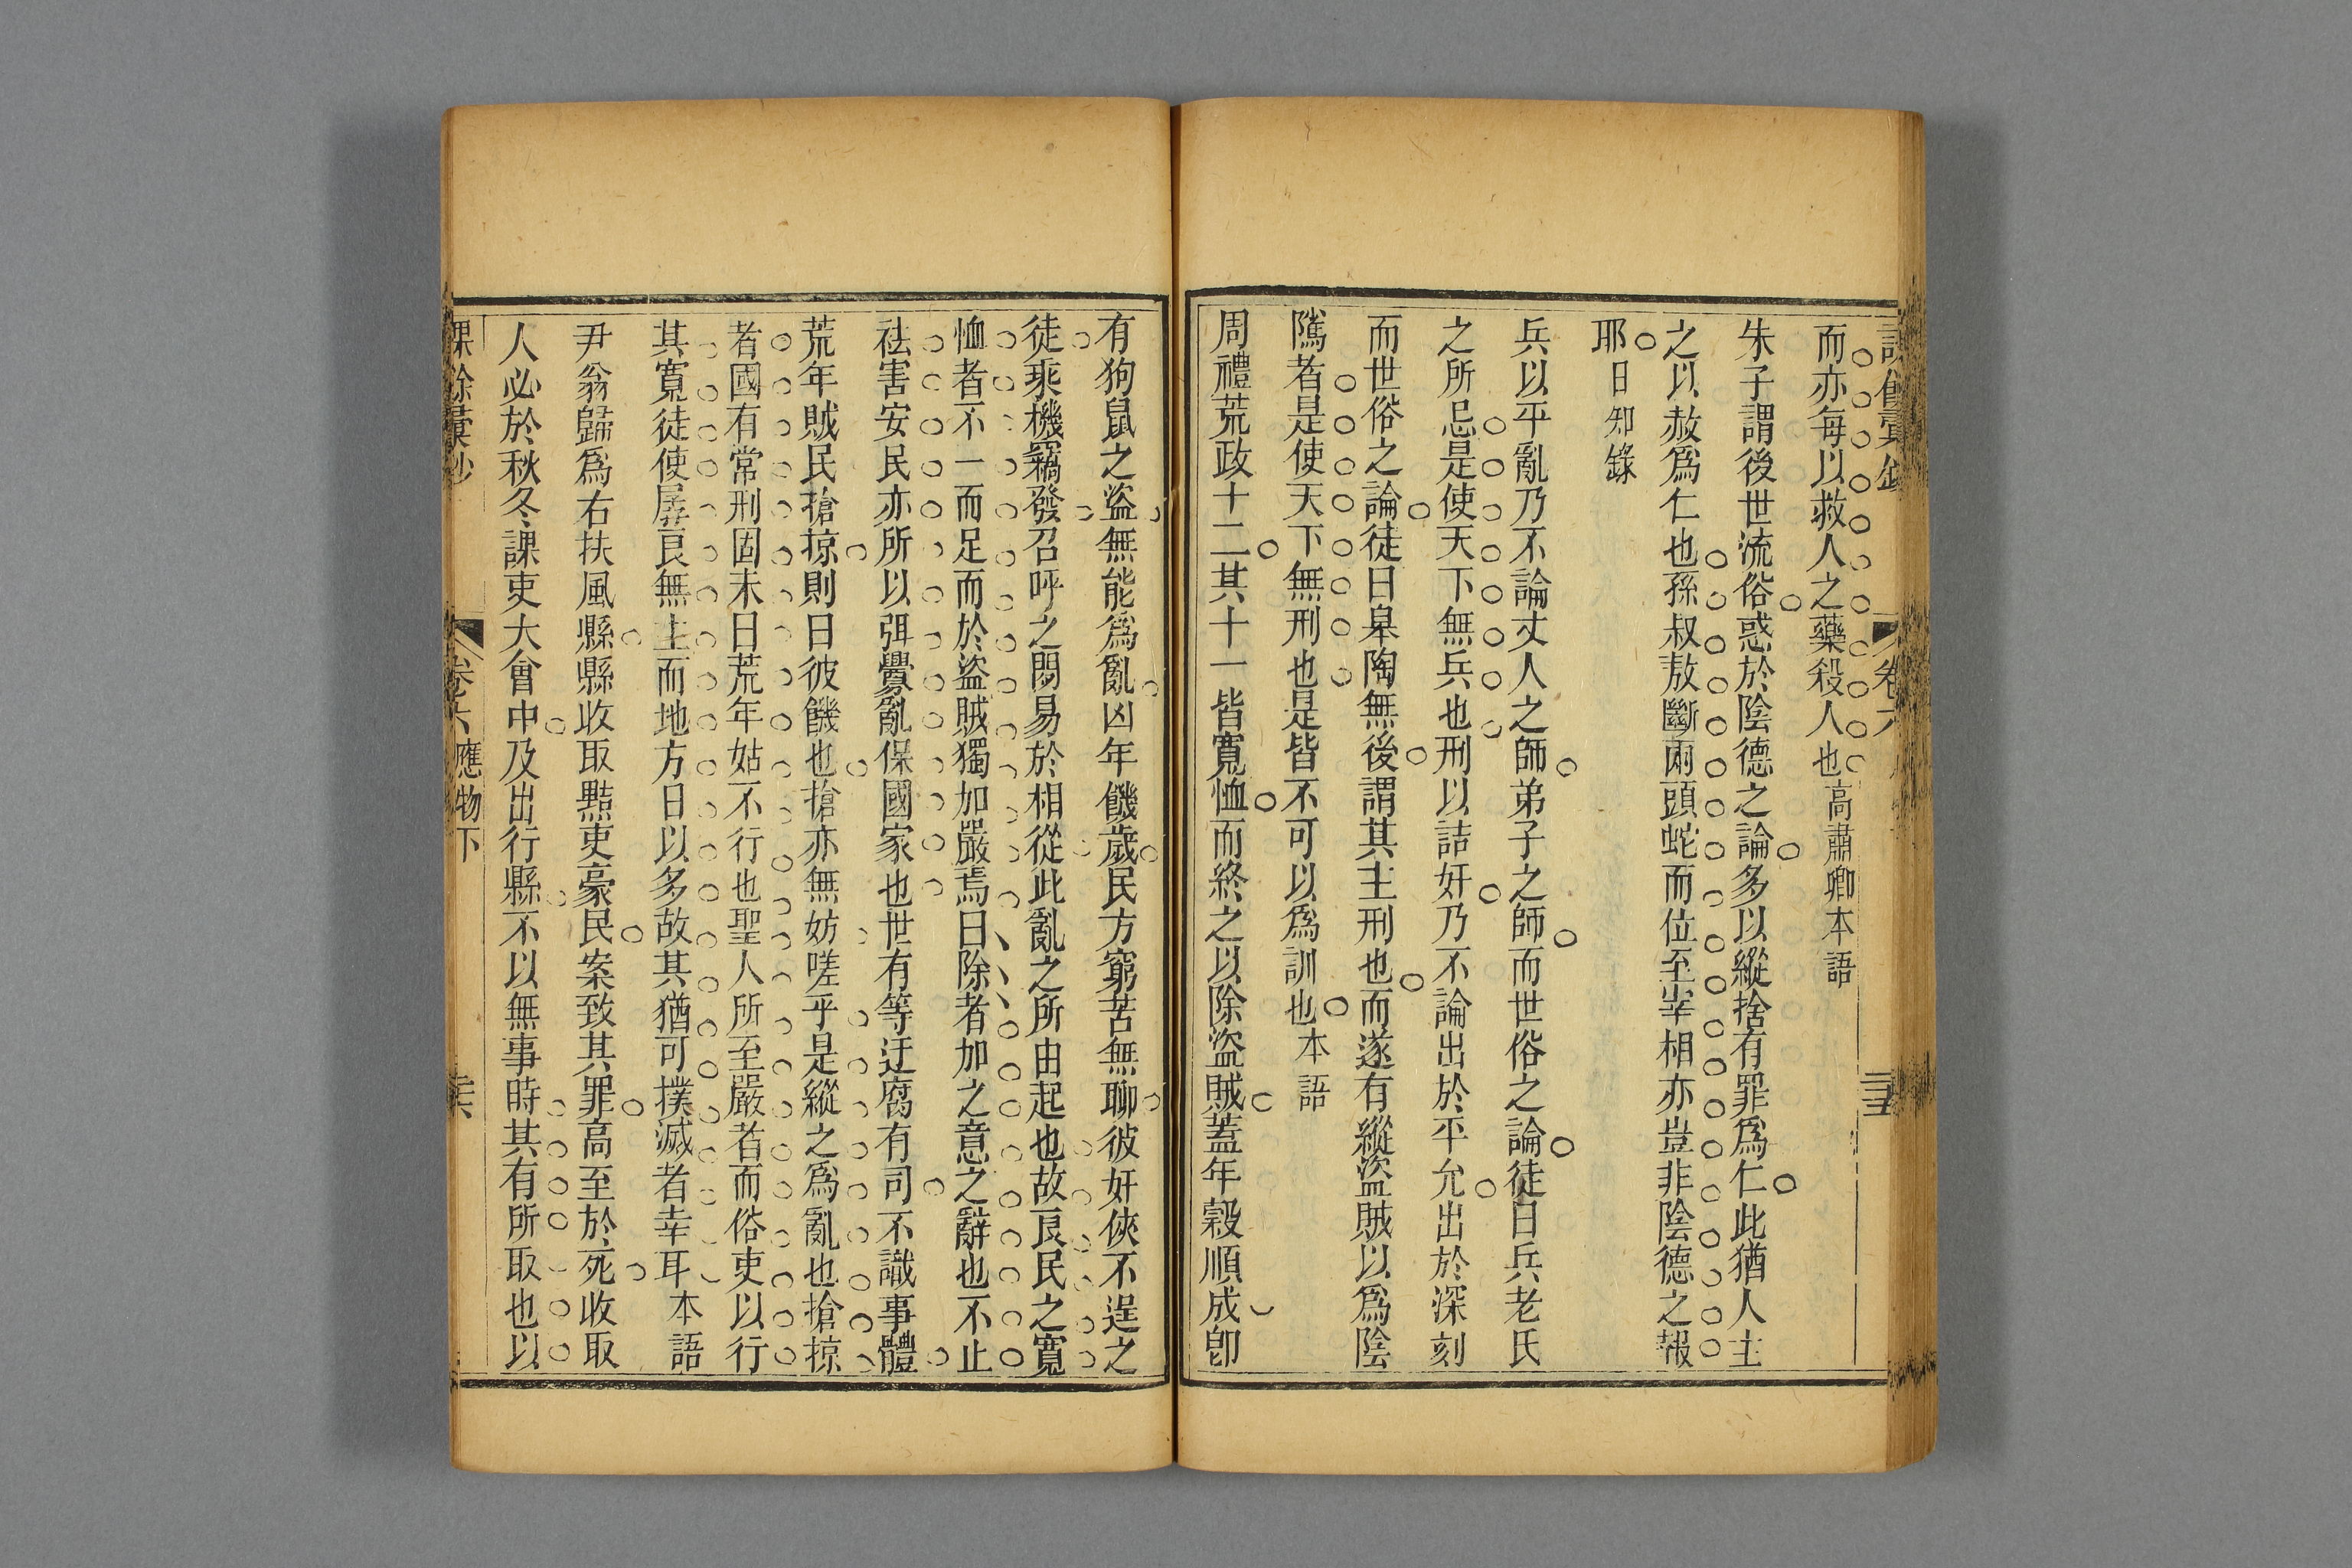 卷六
而亦每以救人之藥殺人也高肅卿本語
朱子謂後世流俗惑於陰德之論多以縱捨有罪爲仁此猶人主
之以赦爲仁也孫叔敖斷兩頭蛇而位至宰相亦豈非陰德之報
耶日知錄
兵以平亂乃不論丈人之師弟子之師而世俗之論徒曰兵老氏
之所忌是使天下無兵也刑以詰奸乃不論出於平允出於深刻
而世俗之論徒曰皋陶無後謂其主刑也而遂有縱盜賊以爲陰
隲者是使天下無刑也是皆不可以爲訓也本語
周禮荒政十二其十一皆寬恤而終之以除盜賊蓋年穀順成卽
有狗鼠之盜無能爲亂凶年饑歲民方窮苦無聊彼奸俠不逞之
徒乘機竊發召呼之閒易於相從此亂之所由起也故良民之寬
恤者不一而足而於盜賊獨加嚴焉曰除者加之意之辭也不止
祛害安民亦所以弭釁亂保國家也世有等迂腐有司不識事體
荒年賊民搶掠則曰彼饑也搶亦無妨嗟乎是縱之爲亂也搶掠
者國有常刑固未曰荒年姑不行也聖人所至嚴者而俗吏以行
其寬徒使孱良無主而地方日以多故其猶可撲滅者幸耳本語
尹翁歸爲右扶風縣縣收取黠吏豪民案致其罪高至於死收取
人必於秋冬課吏大會中及出行縣不以無事時其有所取也以
課餘彙鈔
卷六應物下